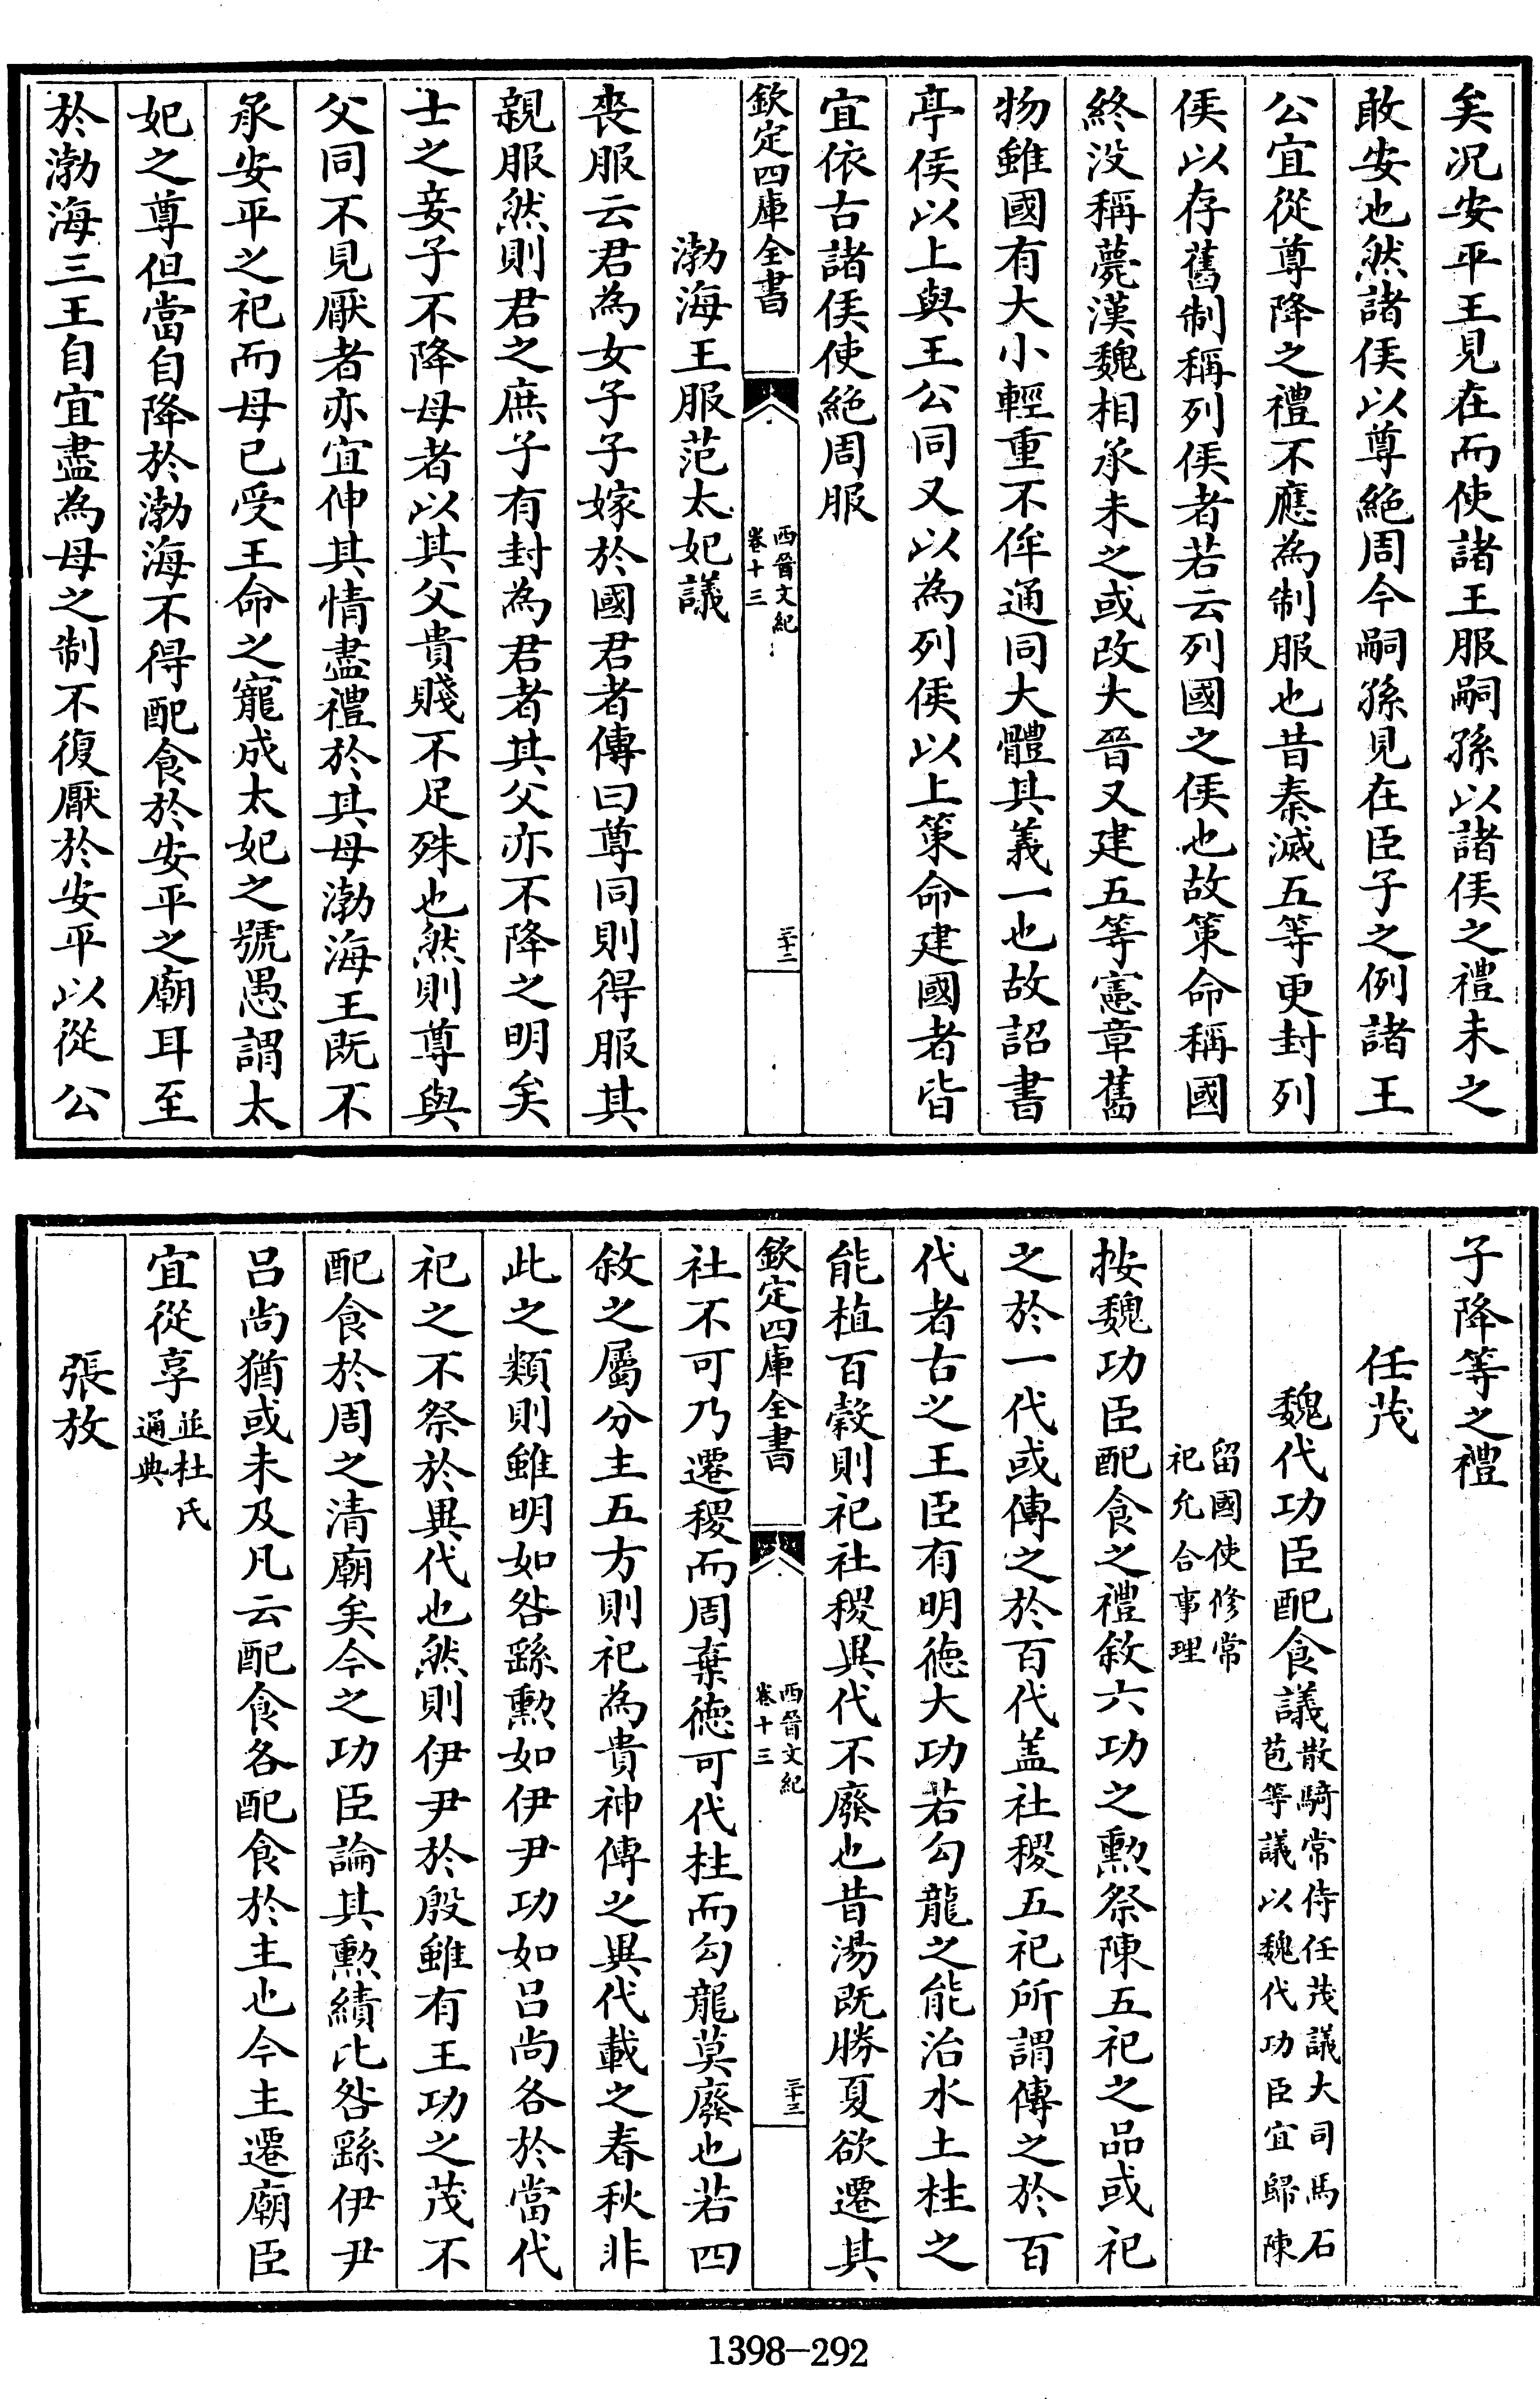 矣况安平王見在而使諸王服嗣孫以諸侯之禮未之
敢安也然諸侯以尊絶周今嗣孫見在臣子之例諸王
公宜從尊降之禮不應為制服也昔秦滅五等更封列
侯以存舊制稱列侯者若云列國之侯也故策命稱國
終没稱薨漢魏相承未之或改大晉又建五等憲章舊
物雖國有大小輕重不侔通同大體其義一也故詔書
亭侯以上與王公同又以為列侯以上策命建國者皆
宜依古諸侯使絶周服
欽定四庫全書
西晉文紀
卷十三
三十二
渤海王服范太妃議
喪服云君為女子子嫁於國君者傳曰尊同則得服其
親服然則君之庶子有封為君者其父亦不降之明矣
士之妾子不降母者以其父貴賤不足殊也然則尊與
父同不見厭者亦宜伸其情盡禮於其母渤海王既不
承安平之祀而母已受王命之寵成太妃之號愚謂太
妃之尊但當自降於渤海不得配食於安平之廟耳至
於渤海三王自宜盡為母之制不復厭於安平以從公
子降等之禮
任茂
魏代功臣配食議散騎常侍任茂議大司馬石
苞等議以魏代功臣宜歸陳
留國使修常
祀允合事理
按魏功臣配食之禮敘六功之勲祭陳五祀之品或祀
之於一代或傳之於百代盖社稷五祀所謂傳之於百
代者古之王臣有明徳大功若勾龍之能治水土柱之
能植百穀則祀社稷異代不廢也昔湯既勝夏欲遷其
欽定四庫全書
西晉文紀
卷十三
三十三
社不可乃遷稷而周棄徳可代柱而勾龍莫廢也若四
敘之屬分主五方則祀為貴神傳之異代載之春秋非
此之類則雖明如咎繇勲如伊尹功如呂尚各於當代
祀之不祭於異代也然則伊尹於殷雖有王功之茂不
配食於周之清廟矣今之功臣論其勲績比咎繇伊尹
呂尚猶或未及凡云配食各配食於主也今主遷廟臣
宜從享並杜氏
通典
張放
1398-292